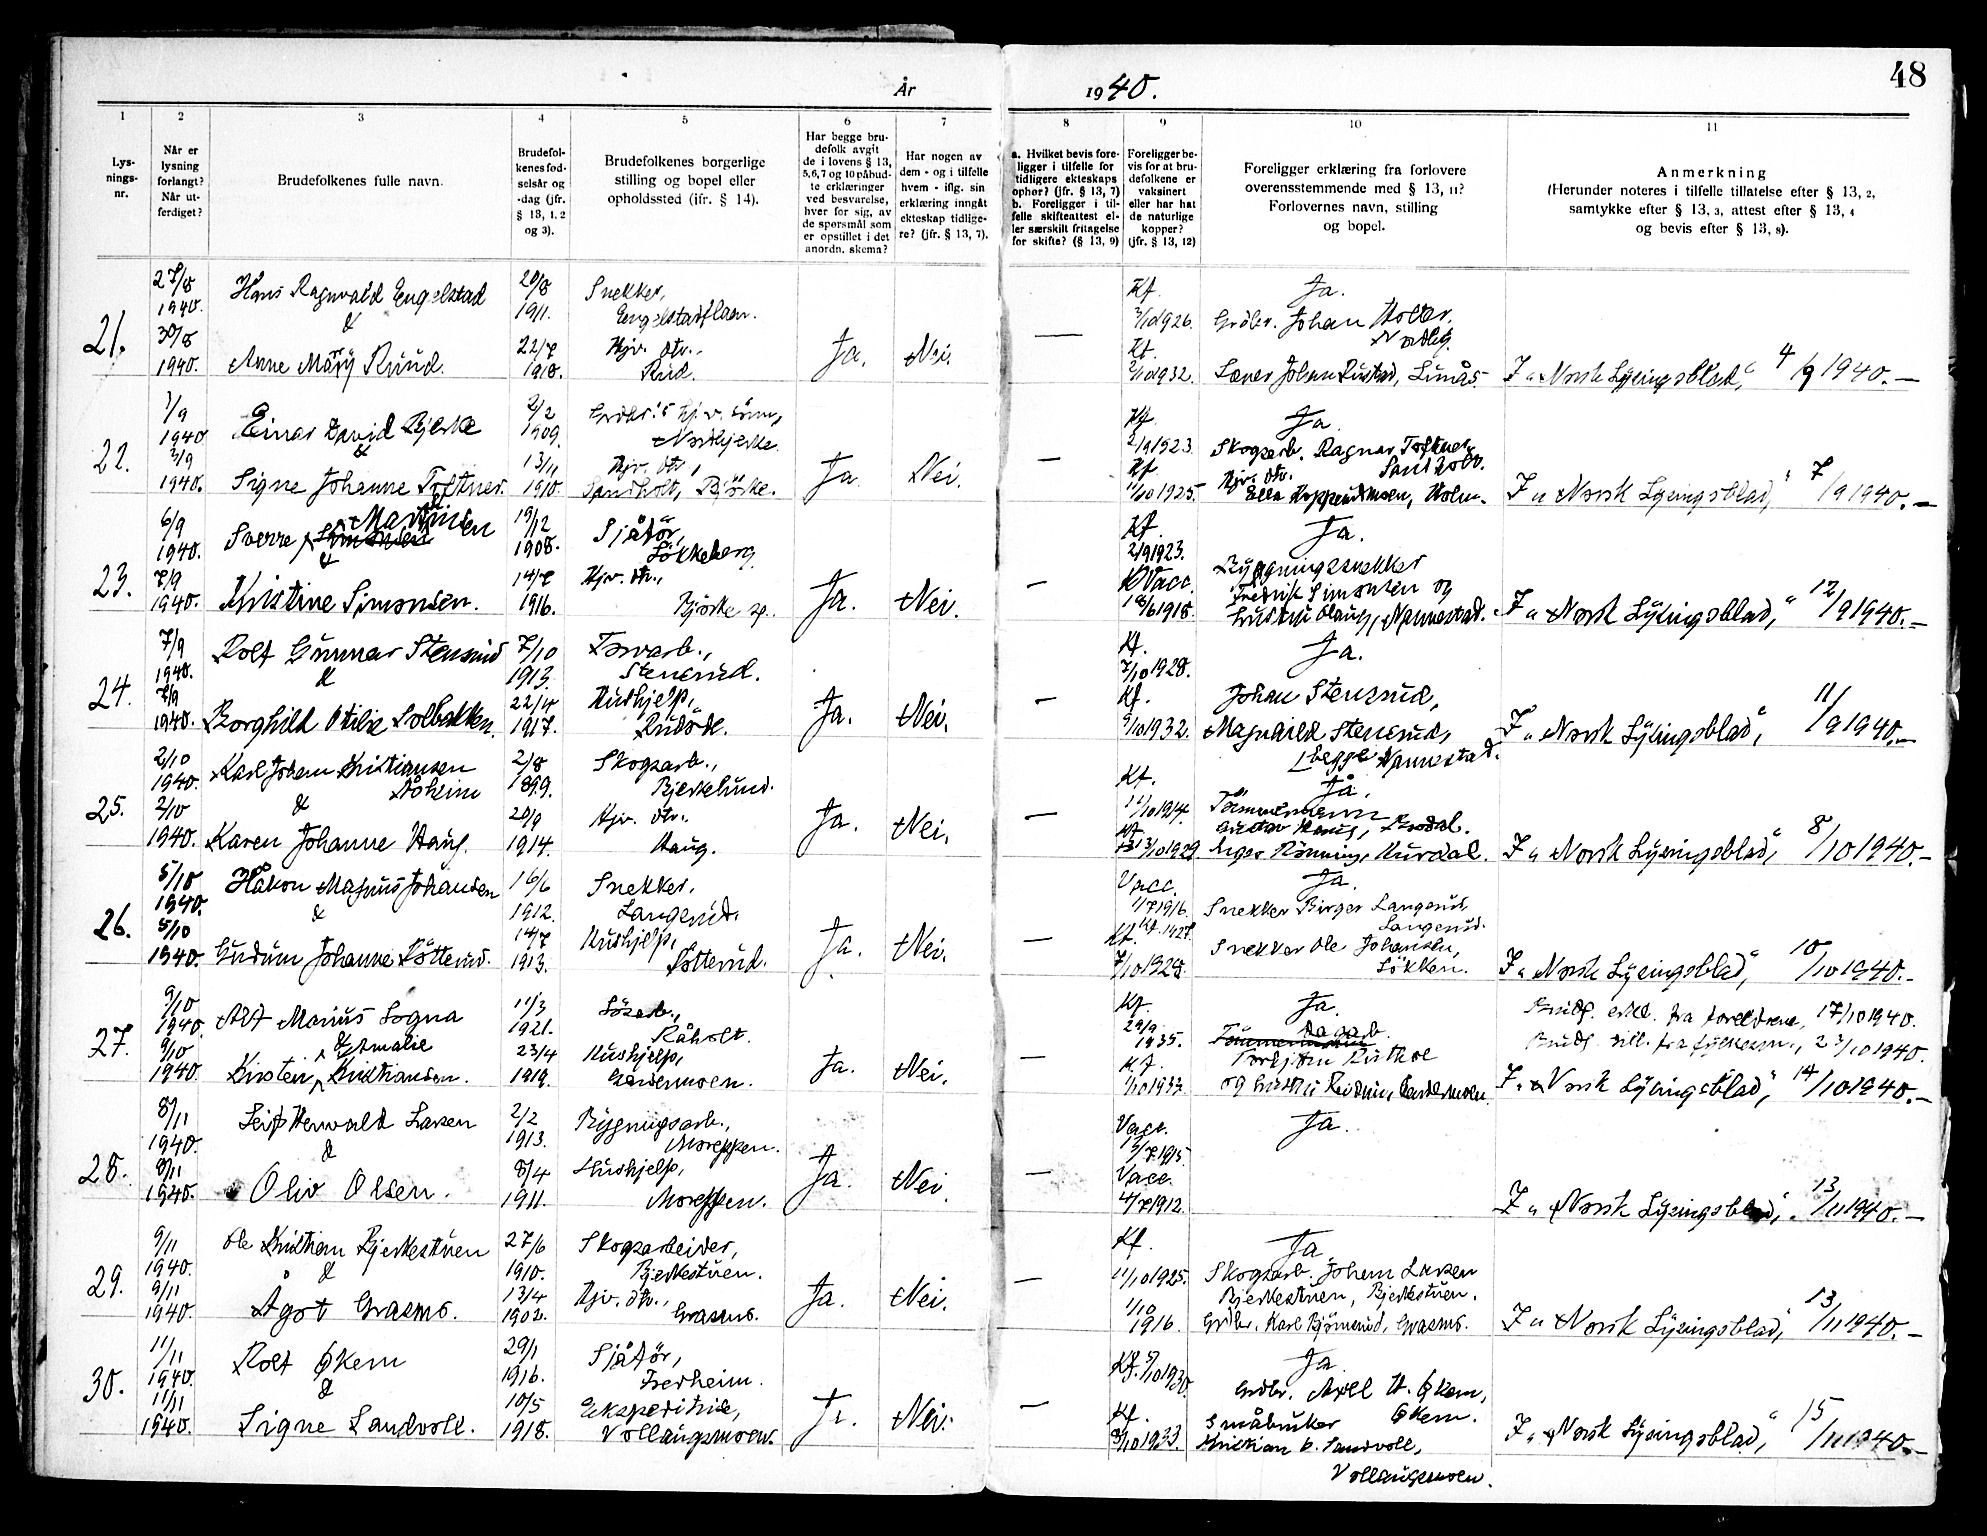 48
År 1940.
1 2 3 4 5 6 7 8 9 10 11
Lysningsnr.
Når er lysning forlangt? Når utferdiget?
Brudefolkenes fulle navn.
Brudefolkenes fødselsår og -dag (jfr. § 13, 1, 2 og 3).
Brudefolkenes borgerlige stilling og bopel eller opholdssted (ifr. § 14).
Har begge brudefolk avgit de i lovens § 13, 5, 6, 7 og 10 påbudte erklæringer ved besvarelse, hver for sig, av de spørsmål som er opstillet i det anordn. skema?
Har nogen av dem - og i tilfelle hvem - iflg. sin erklæring inngått ekteskap tidligere? (jfr. § 13, 7).
a. Hvilket bevis foreligger i tilfelle for tidligere ekteskaps ophør? (jfr. § 13, 7) b. Foreligger i tilfelle skifteattest eller særskilt fritagelse for skifte? (§ 13, 9)
Foreligger bevis for at brudefolkene er vaksinert eller har hat de naturlige kopper? (jfr. § 13, 12)
Foreligger erklæring fra forlovere overensstemmende med § 13, 11? Forlovernes navn, stilling og bopel.
Anmerkning (Herunder noteres i tilfelle tillatelse efter § 13, 2, samtykke efter § 13, 3, attest efter § 13, 4 og bevis efter § 13, 8).
21.
27/8 1940. Hans Ragnvald Engelstad 20/8 1911. Snekker, Engelstadflaen. Kf. 3/10 1926. Ja. Grdbr. Johan Holter, Nordby.
&
30/8 1940. Anne Mary Ruud. 22/7 1918. Hjv. dtr., Rud. Ja. Nei. — Kf. 2/10 1932. Johan Rustad, I "Norsk Lysingsblad," 4/9 1940. —
22.
1/9 1940 Einar David Bjerke 2/2 1909. Nordbjerke. Kf. 2/9 1923. Ja. Skogsarb. Ragnar Toftner, Sandholt.
&
2/9 1940. Signe Johanne Toftner. 13/11 1910. Hjv. dtr., Sandholt, Bjørke. Ja Nei. — Kf. 11/10 1925. Hjv. dtr. Holm. I "Norsk Lysingsblad," 7/9 1940. —
23.
6/9 1940. Sverre Martinsen 19/12 1908. Sjåfør, Løkkeberg. Kf. 2/9 1923. Ja. Bygningssnekker
&
7/9 1940. Kristine Simonsen. 14/7 1916. Hjv. dtr., Bjørke sp. Ja. Nei. — Vacc. 18/6 1918. Fredrik Simonsen og hustru Olaug, Nannestad. I "Norsk Lysingsblad," 12/9 1940. —
24.
7/9 1940. Rolf Gunnar Stensrud 7/10 1913. Stensrud. Kf. 7/10 1928. Ja.
&
7/9 1940. Borghild Otilie Solbakken. 22/4 1917. Hushjelp, Ja. Nei. — Kf. 9/10 1932. Johan Stensrud, Magnhild Stensrud, begge Nannestad. I "Norsk Lysingsblad," 11/9 1940. —
25.
2/10 1940. Karl Johan Kristiansen Åsheim 2/8 1899. Skogsarb., Bjerkelund. Kf. 11/10 1914. Ja. Tømmermann
&
2/10 1940. Karen Johanne Haug. 20/9 1914. Hjv. dtr. Haug. Ja. Nei. — Kf. 13/10 1929. Gustav Haug, Asger Rønning, Hurdal. I "Norsk Lysingsblad," 8/10 1940. —
26.
5/10 1940. Håkon Magnus Johansen 16/6 1912. Snekker, Langerud. Vacc. 1/7 1916. Kf. 1927. Ja. Snekker Birger Langerud, Langerud.
&
5/10 1940. Gudrun Johanne Røtterud. 14/7 1913. Hushjelp, Røtterud. Ja. Nei. — Kf. 7/10 1928. Snekker Ole Johansen, Løkken. I "Norsk Lysingsblad," 10/10 1940. —
27.
9/10 1940. Alf Marius Sogna 11/3 1921. Råholt. Kf. 29/9 1935. Ja. fra foreldrene, 17/10 1940.
&
9/10 1940. Kirsten Amalie Kristiansen. 23/4 1919. Hushjelp, Gardermoen. Ja. Nei. — Kf. 1/10 1933. Torbjørn og hustru Gardermoen. 2 /10 1940. I "Norsk Lysingsblad," 14/10 1940. —
28.
8/11 1940. Leif Henvald Larsen 2/2 1913. Bygningsarb., Moreppen. Vacc. 13/7 1915. Ja.
&
8/11 1940. Oliv Olsen. 8/4 1911. Hushjelp, Moreppen. Ja. Nei. — Vacc. 4/7 1912. I "Norsk Lysingsblad," 13/11 1940. —
29.
9/11 1940. Ole Kristian Bjerkestuen 27/6 1910. Skogsarbeider, Bjerkestuen. Kf. 11/10 1925. Ja Skogsarb. Johan Larsen Bjerkestuen, Bjerkestuen.
&
9/11 1940. Ågot Grasmo. 13/4 1902. Hjv. dtr., Grasmo. Ja. Nei. — 1/10 1916. Grdbr. Karl Bjørnerud, Grasmo. I "Norsk Lysingsblad," 13/11 1940. —
30.
11/11 1940. Rolf Økern 29/1 1916. Sjåfør, Fredheim. Kf. 5/10 1930. Ja Grdbr. Axel H. Økern, Økern.
&
11/11 1940. Signe Sandvold. 10/5 1918. Ekspeditrise, Vollaugmoen. Ja. Nei. — Kf. 8/10 1933. Småbruker Kristian B. Sandvold, Vollaugmoen. I "Norsk Lysingsblad," 15/11 1940. —